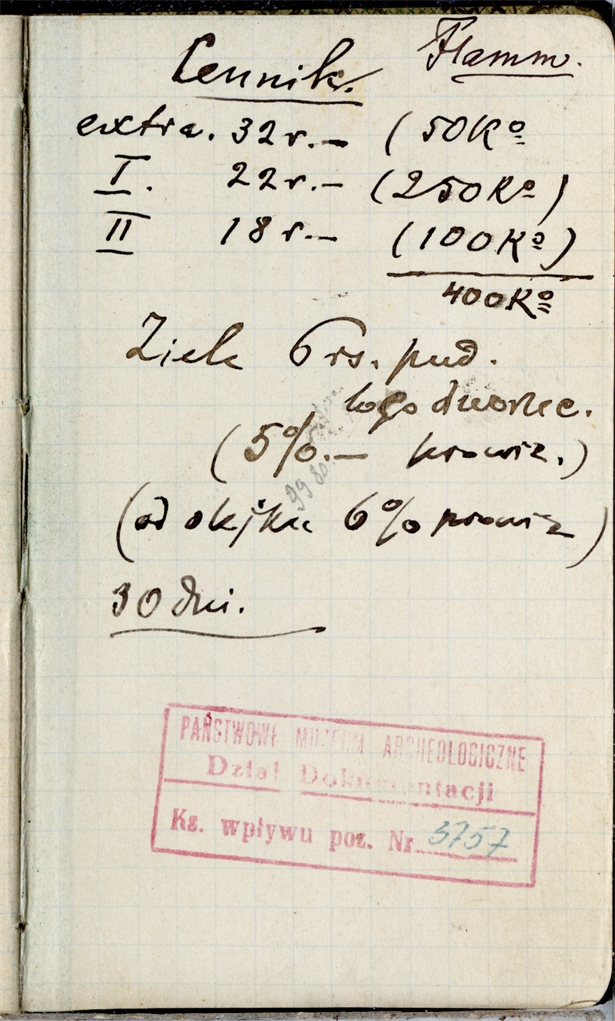 Cennik. Flamm.
extra. 32 r.— (50Ko
I. 22 r.— (250Ko)
II 18 r.— (100Ko)
400Ko
6 rs. pud.
loco dworzec.
(5%.— prowiz.)
(od olejku 6% prowiz)
30 dni.
PAŃSTWOWE MUZEUM ARCHEOLOGICZNE
Dział Dokumentacji
Ks. wpływu poz. Nr. 3757